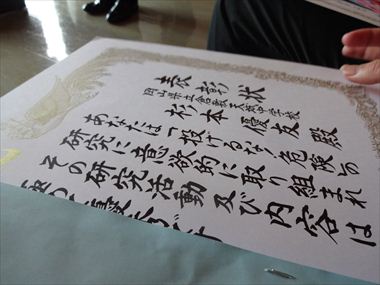 表彰状
岡山県立倉敷天城中学校
杉本 優友 殿
あなたは「投げるな!危険」の
研究に意欲的に取り組まれ
その研究活動及び内容は